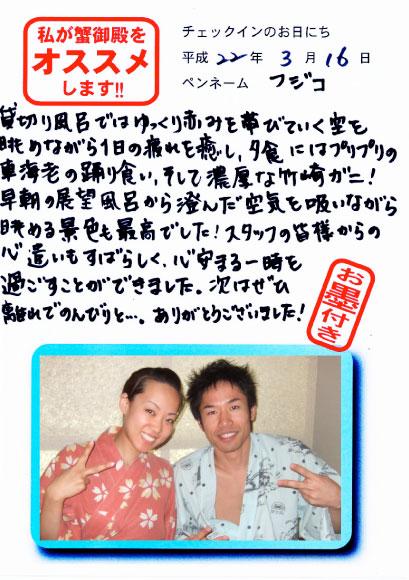 私が蟹御殿を
オススメ
します!!
チェックインのお日にち
平成 22 年 3 月 16 日
ペンネーム フジコ
貸切り風呂ではゆっくり赤みを帯びていく空を
眺めながら1日の疲れを癒し、夕食にはプリプリの
車海老の踊り食い、そして濃厚な竹崎ガニ!
早朝の展望風呂から澄んだ空気を吸いながら
眺める景色も最高でした!スタッフの皆様からの
心遣いもすばらしく、心安まる一時を
過ごすことができました。次はぜひ
離れでのんびりと…。ありがとうございました!
お墨付き